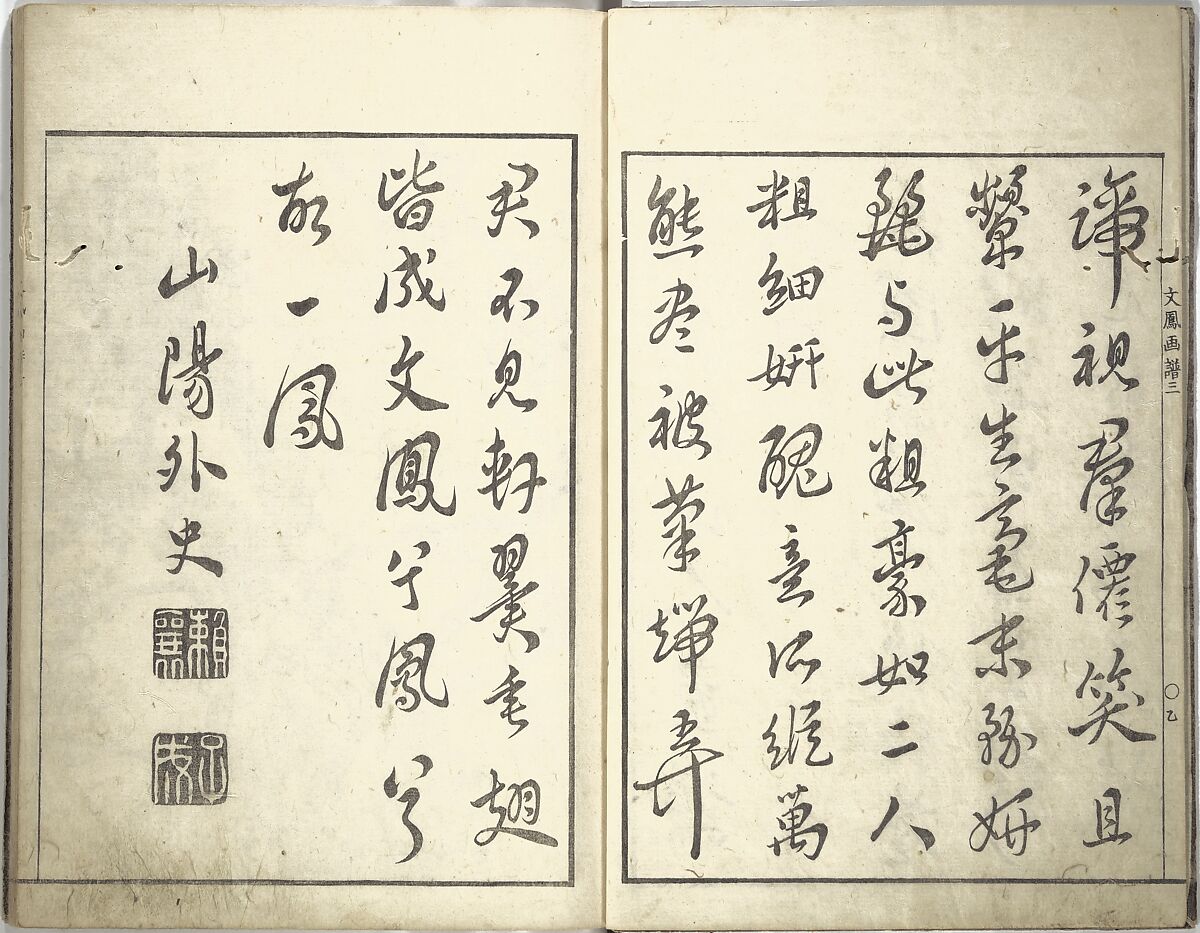 文鳳画譜三
〇乙
諦視羣僊笑且
顰平生毫末務妍
麗与此粗豪如二人
粗細妍醜意所縱萬
態盡被筆端弄
君不見軒翼垂翅
皆成文鳳兮鳳兮
故一鳳
山陽外史
賴襄
子成